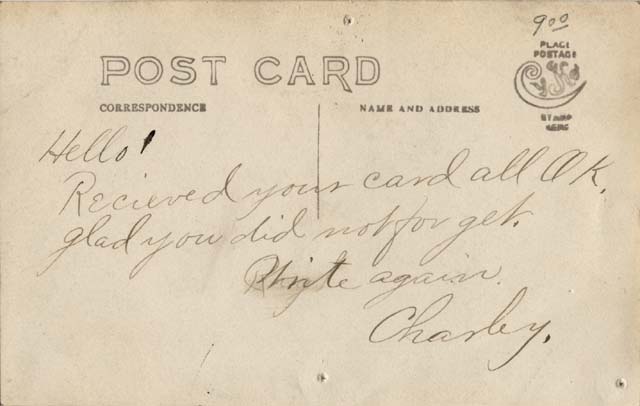 9.00
PLACE
POSTAGE
STAMP
HERE
POST CARD
CORRESPONDENCE
NAME AND ADDRESS
Hello!
Recieved your card all OK,
glad you did not forget.
Write again.
Charley,